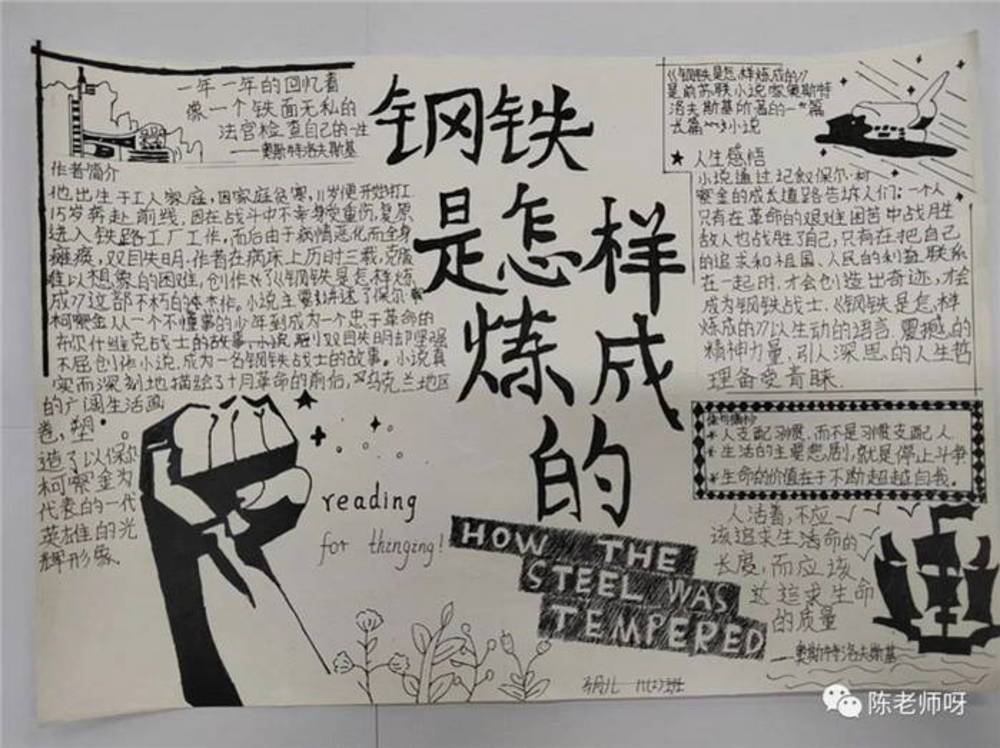 一年一年的回忆着
像一个铁面无私的
法官检查自己的一性
——奥斯特洛夫斯基
作者简介
他出生于工人家庭,因家庭贫寒,11岁便开始打工
15岁奔赴前线,因在战斗中不幸身受重伤,复原
进入铁路工厂工作,而后由于病情恶化而全身
瘫痪,双目失明.作者在病床上历时三载,克服
难以想象的困难,创作《《钢铁是怎样炼
成》》这部不朽的杰作。小说主要讲述了保尔
柯察金从一个不懂事的少年到成为一个忠于革命的
布尔什维克战士的故事,小说,双目失明却坚强
不屈创作小说,成为一名钢铁战士的故事。小说真
实而深刻地描绘了十月革命的前后,乌克兰地区
的广阔生活画
卷,塑
造了以保尔
柯察金为
代表的一代
英雄的光
辉形象
钢铁
是怎样
炼成
的
reading
for thinging!
HOW THE
STEEL WAS
TEMPERED
《《钢铁是怎样炼成的》》
是前苏联小说家奥斯特
洛夫斯基所著的一篇
长篇小说
★ 人生感悟
小说通过记叙保尔·柯
察金的成长道路告诉人们:一个人
只有在革命的艰难困苦中战胜
敌人也战胜了自己,只有在把自己
的追求和祖国、人民的利益联系
在一起时,才会创造出奇迹,才会
成为钢铁战士.《钢铁是怎样
炼成的》》以生动的语言,震撼的
精神力量,引人深思的人生哲
理备受青睐.
佳句摘抄
*人支配习惯,而不是习惯支配人
*生活的主要悲剧,就是停止斗争
*生命的价值在于不断超越自我。
人活着,不应
该追求生活命的
长度,而应该
追求生命
的质量
——奥斯特洛夫斯基
班
陈老师呀